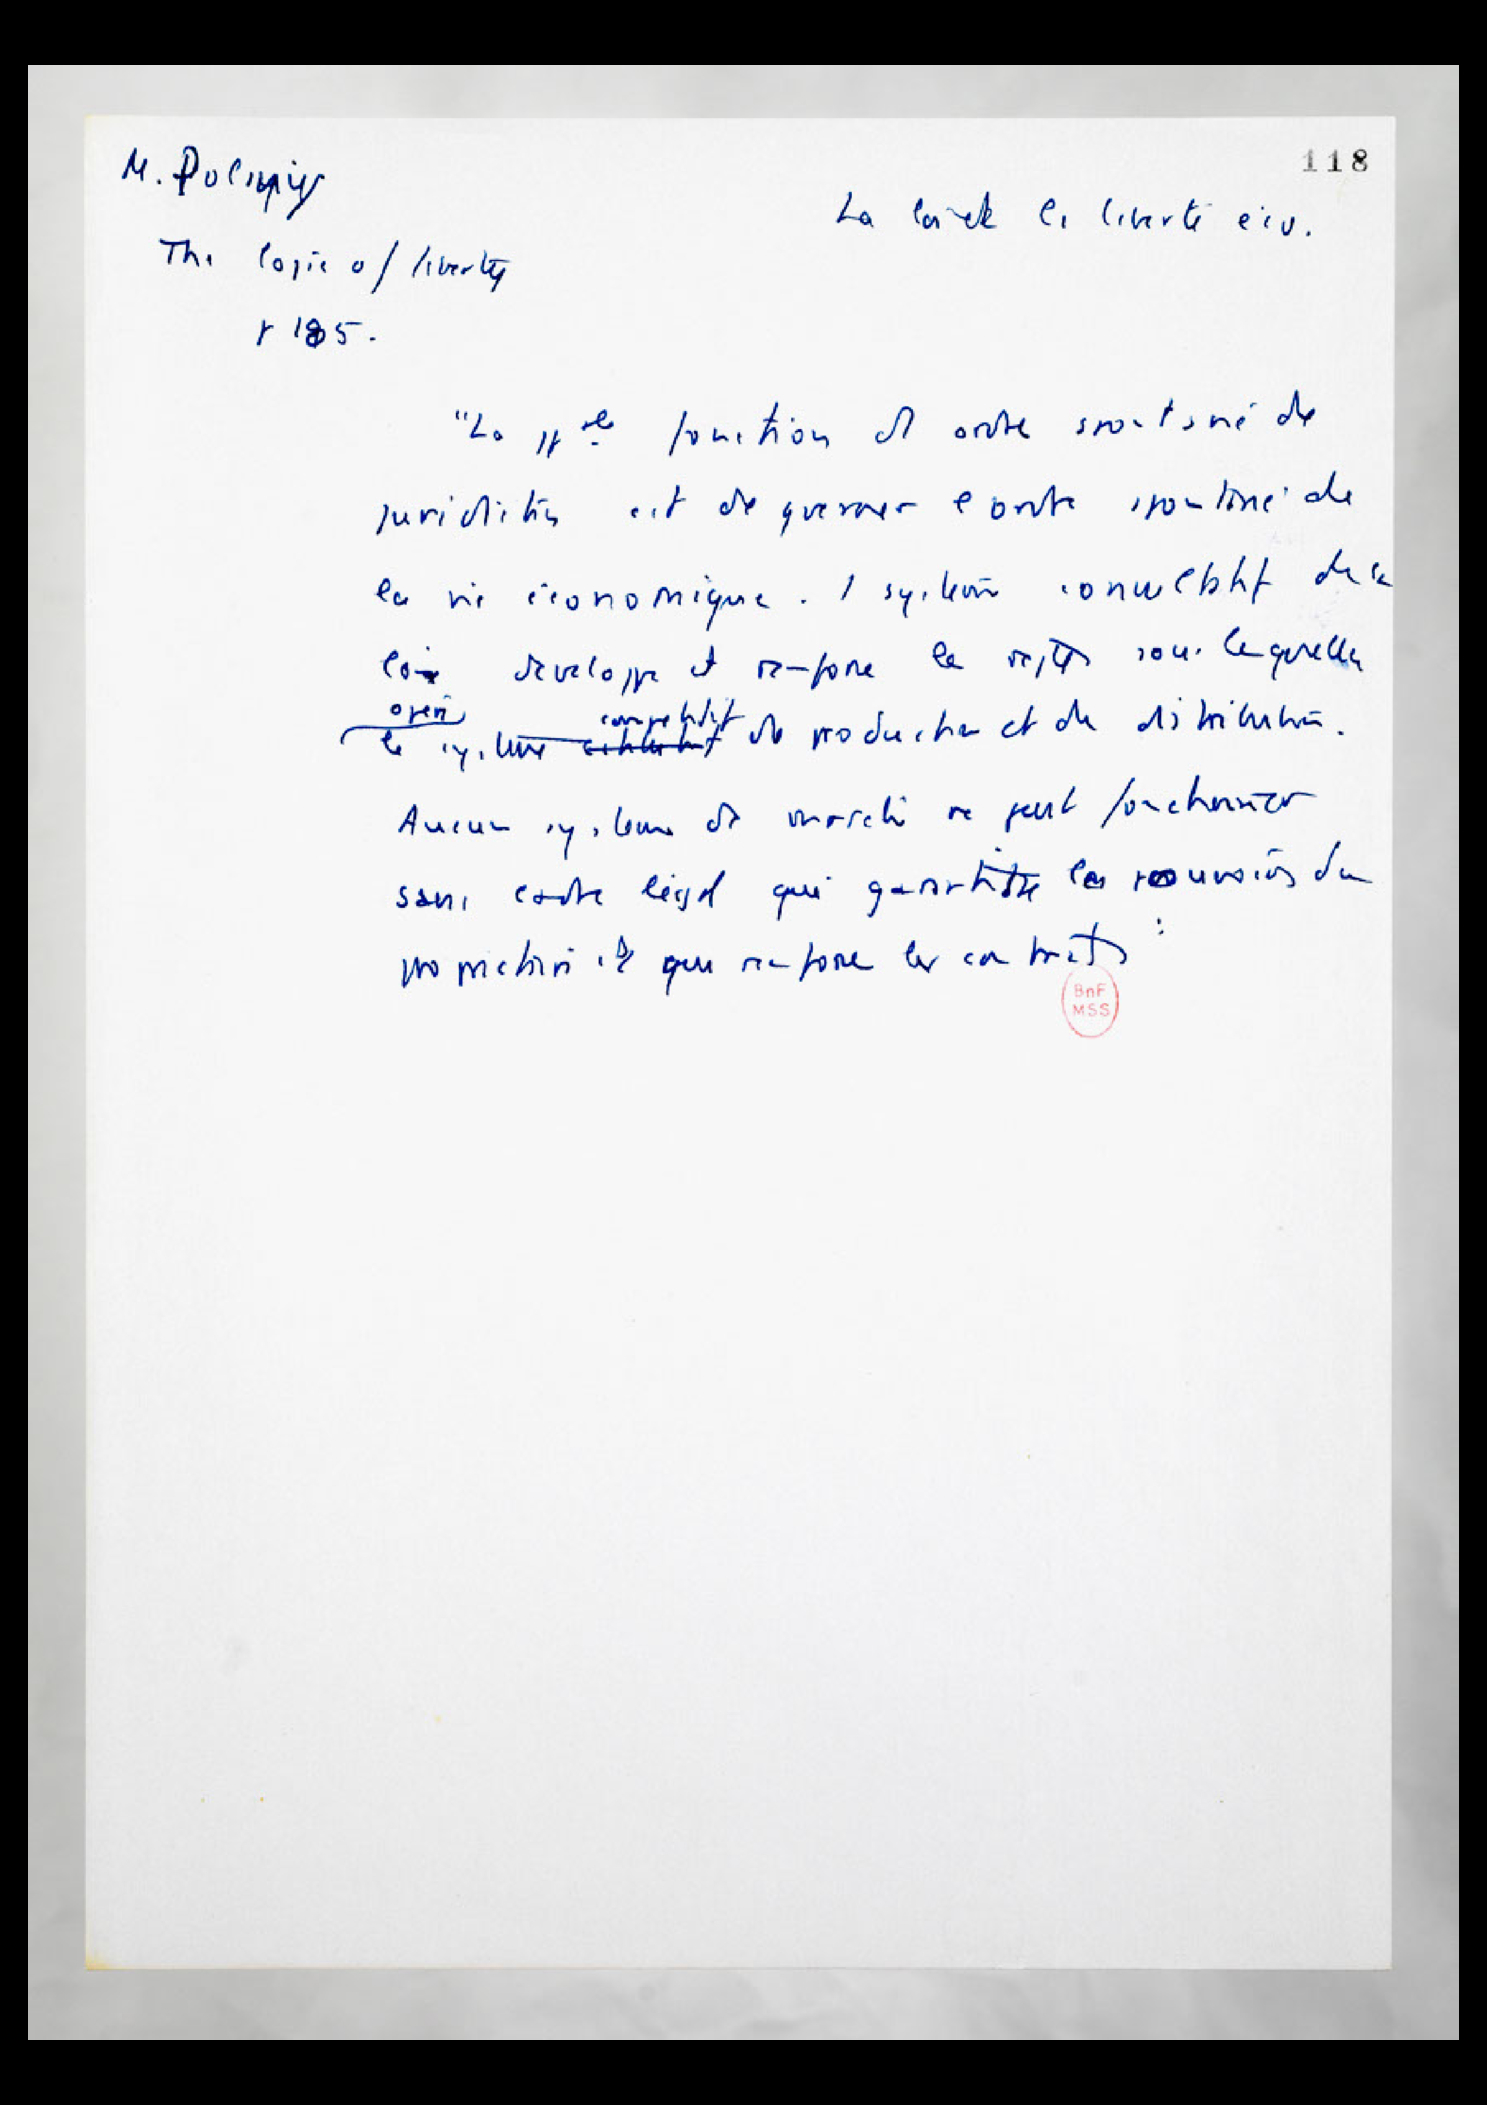 118
M. Polanyi
La loi et la liberté éco.
The logic of liberty
p 185.
"La ppale fonction d ordre spontané de
juridiction est de gouverner l ordre spontané de
la vie économique. l système consultatif de la
loi développe et renforce les règles sous lesquelles
opère competitif
le système de production et de distribution.
Aucun système de marché ne peut fonctionner
sans cadre légal qui garantisse les pouvoirs du
propriétaire et qui renforce les contrats"
BnF
MSS